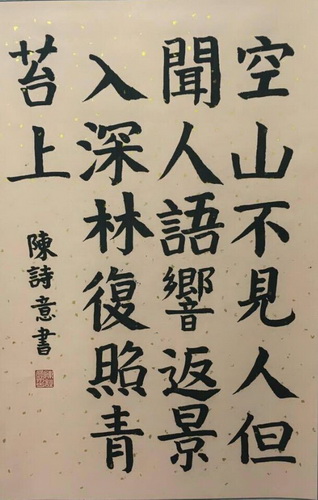 空山不見人但
聞人語響返景
入深林復照青
苔上
陳詩意書